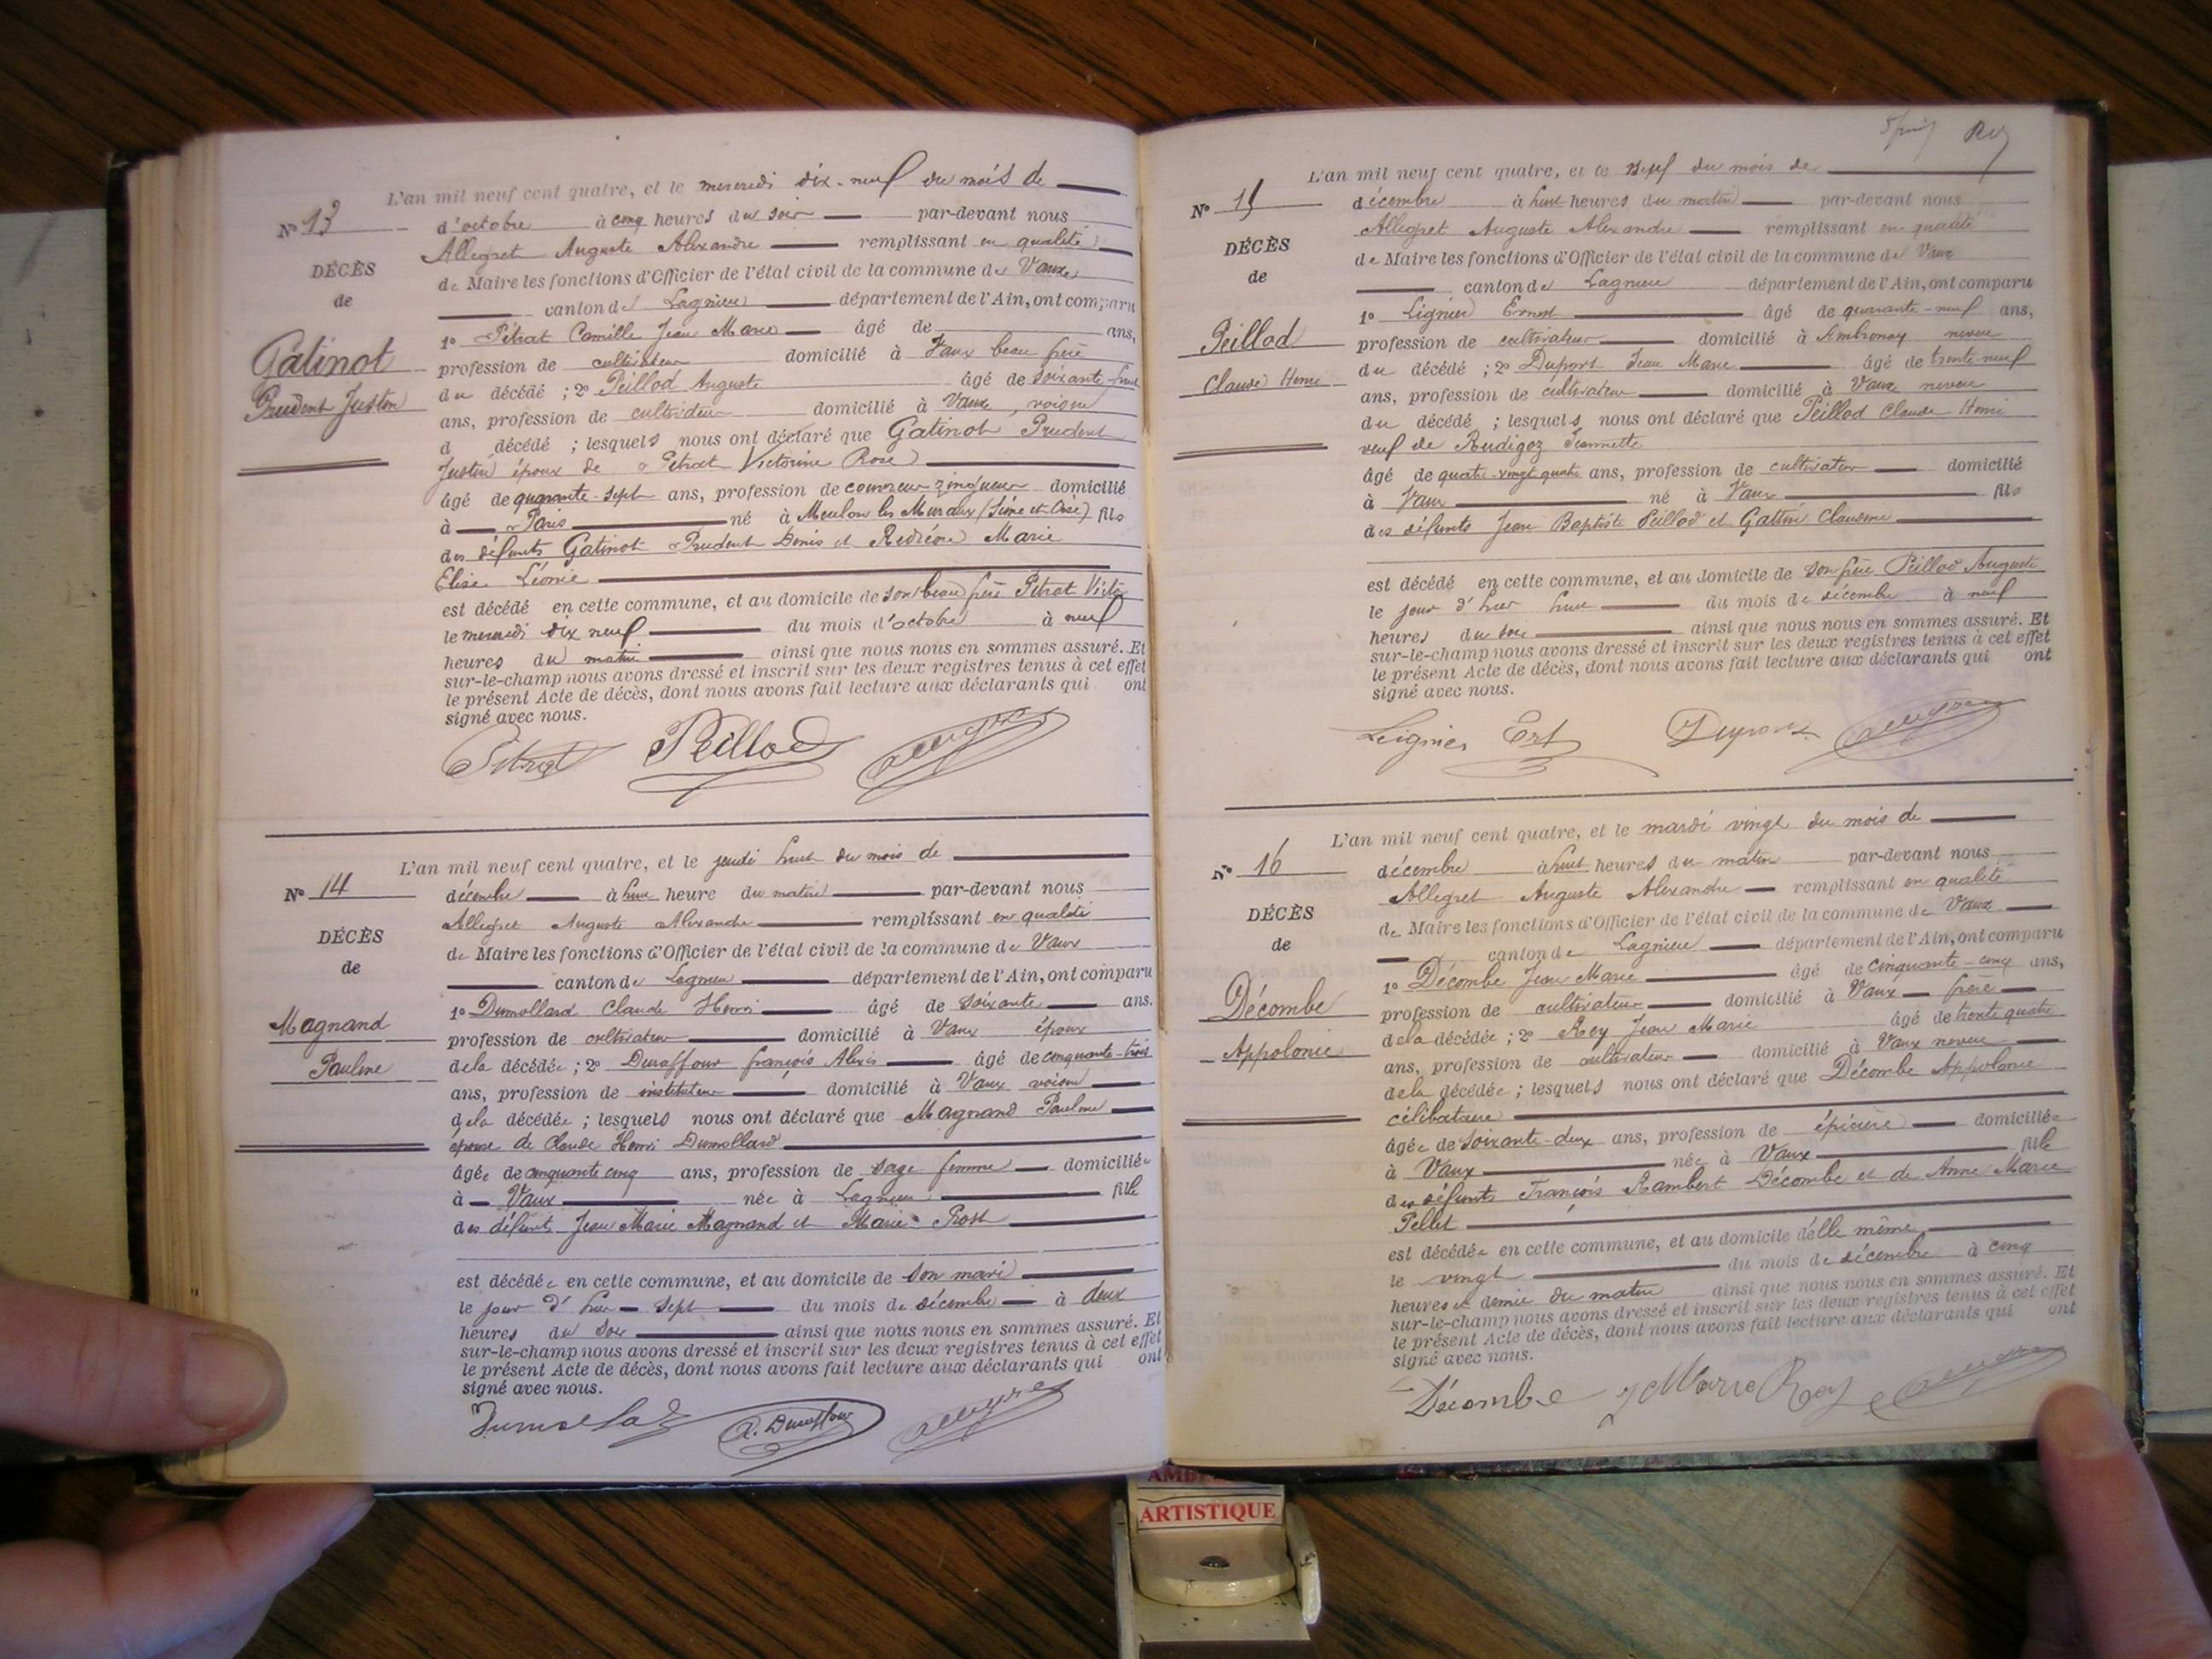 L'an mil neuf cent quatre, et le mercredi dix-neuf du mois de
N° 13
d'octobre à cinq heures du soir par-devant nous
Allegret Auguste Alexandre remplissant en qualité
DÉCÈS
de Maire les fonctions d'Officier de l'état civil de la commune de Vaux
de
canton de Lagnieu département de l'Ain, ont comparu
1° Pétrat Camille Jean Marie âgé de ans,
Gatinot
profession de cultivateur domicilié à Vaux beau frère
Prudent Justin
du décédé ; 2° Peillod Auguste âgé de soixante-huit
ans, profession de cultivateur domicilié à Vaux, voisin
d décédé ; lesquels nous ont déclaré que Gatinot Prudent
Justin époux de Pétrat Victorine Rose
âgé de quarante-sept ans, profession de couvreur zingueur domicilié
à Paris né à Meulan les Muraux (Seine et Oise) fils
des défunts Gatinot Prudent Denis et Marie
Elise Léonie
est décédé en cette commune, et au domicile de son beau père Pétrat
le mercredi dix neuf du mois d'octobre à neuf
heures du matin ainsi que nous nous en sommes assuré. Et
sur-le-champ nous avons dressé et inscrit sur les deux registres tenus à cet effet
le présent Acte de décès, dont nous avons fait lecture aux déclarants qui ont
signé avec nous.
Pétrat Peillod Allegret
L'an mil neuf cent quatre, et le jeudi huit du mois de
N° 14
décembre à huit heure du matin par-devant nous
Allegret Auguste Alexandre remplissant en qualité
DÉCÈS
de Maire les fonctions d'Officier de l'état civil de la commune de Vaux
de
canton de Lagnieu département de l'Ain, ont comparu
1° Dumollard Claude Henri âgé de soixante ans.
Magnand
profession de cultivateur domicilié à Vaux époux
Pauline
de la décédée ; 2° Duraffour françois Alexis âgé de cinquante-trois
ans, profession de instituteur domicilié à Vaux voisin
de la décédée ; lesquels nous ont déclaré que Magnand Pauline
épouse de Claude Henri Dumollard
âgée de cinquante cinq ans, profession de sage femme domiciliée
à Vaux née à Lagnieu fille
des défunts Jean Marie Magnand et Marie Prost
est décédée en cette commune, et au domicile de son mari
le jour d'hier sept du mois de décembre à deux
heures du soir ainsi que nous nous en sommes assuré. Et
sur-le-champ nous avons dressé et inscrit sur les deux registres tenus à cet effet
le présent Acte de décès, dont nous avons fait lecture aux déclarants qui ont
signé avec nous.
Dumollard A. Duraffour Allegret
L'an mil neuf cent quatre, et le neuf du mois de
N° 15
décembre à huit heures du matin par-devant nous
Allegret Auguste Alexandre remplissant en qualité
DÉCÈS
de Maire les fonctions d'Officier de l'état civil de la commune de Vaux
de
canton de Lagnieu département de l'Ain, ont comparu
1° Lignier Ernest âgé de quarante-neuf ans,
Peillod
profession de cultivateur domicilié à Ambronay neveu
Claude Henri
du décédé ; 2° Duport Jean Marie âgé de trente-neuf
ans, profession de cultivateur domicilié à Vaux neveu
du décédé ; lesquels nous ont déclaré que Peillod Claude Henri
veuf de Rudigoz Jeannette
âgé de quatre-vingt quatre ans, profession de cultivateur domicilié
à Vaux né à Vaux fils
des défunts Jean Baptiste Peillod et Gattin Claudine
est décédé en cette commune, et au domicile de son frère Peillod Auguste
le jour d'hier huit du mois de décembre à neuf
heures du soir ainsi que nous nous en sommes assuré. Et
sur-le-champ nous avons dressé et inscrit sur les deux registres tenus à cet effet
le présent Acte de décès, dont nous avons fait lecture aux déclarants qui ont
signé avec nous.
Leignier Ert Duport Allegret
L'an mil neuf cent quatre, et le mardi vingt du mois de
N° 16
décembre à huit heures du matin par-devant nous
Allegret Auguste Alexandre remplissant en qualité
DÉCÈS
de Maire les fonctions d'Officier de l'état civil de la commune de Vaux
de
canton de Lagnieu département de l'Ain, ont comparu
1° Décombe Jean Marie âgé de cinquante-cinq ans,
Décombe
profession de cultivateur domicilié à Vaux frère
Appolonie
de la décédée ; 2° Rey Jean Marie âgé de trente quatre
ans, profession de cultivateur domicilié à Vaux neveu
de la décédée ; lesquels nous ont déclaré que Décombe Appolonie
célibataire
âgée de soixante-deux ans, profession de épicière domiciliée
à Vaux née à Vaux fille
des défunts François Rambert Décombe et de Anne Marie
Pellet
est décédée en cette commune, et au domicile d'elle même
le vingt du mois de décembre à cinq
heures et demie du matin ainsi que nous nous en sommes assuré. Et
sur-le-champ nous avons dressé et inscrit sur les deux registres tenus à cet effet
le présent Acte de décès, dont nous avons fait lecture aux déclarants qui ont
signé avec nous.
Décombe J Marie Rey Allegret
ARTISTIQUE